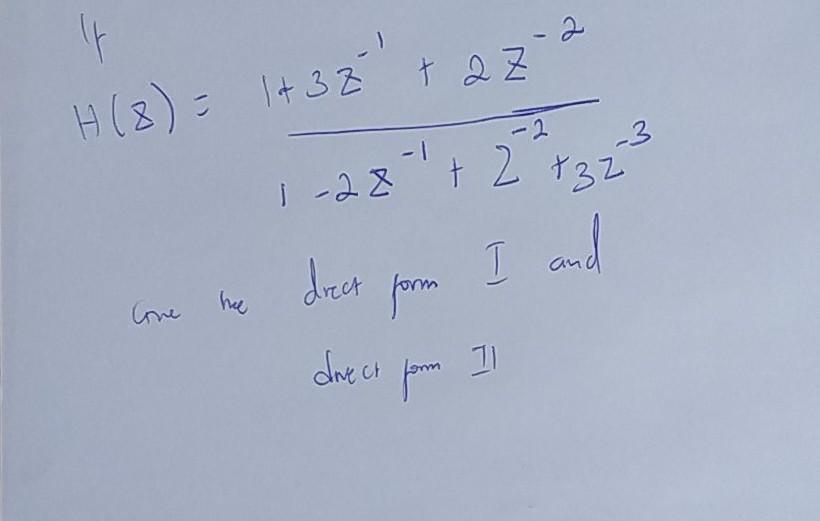 If
H(z) = 1+3z^-1 + 2z^-2
1 -2z^-1 + z^-2 +3z^-3
Give the direct form I and
direct form II